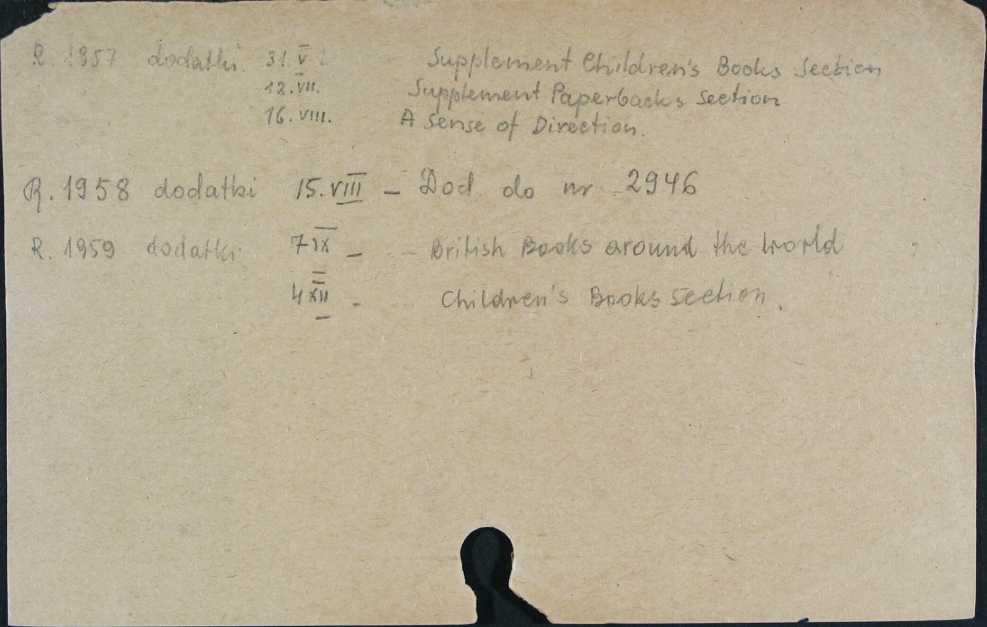 R. 1957 dodatki 31. V Supplement Children's Books Section
12. VII. Supplement Paperbacks Section
16. VIII. A Sense of Direction.
R. 1958 dodatki 15. VIII – Dod. do nr 2946
R. 1959 dodatki 7 IX – – British Books around the World
4 XII – Children's Books Section.